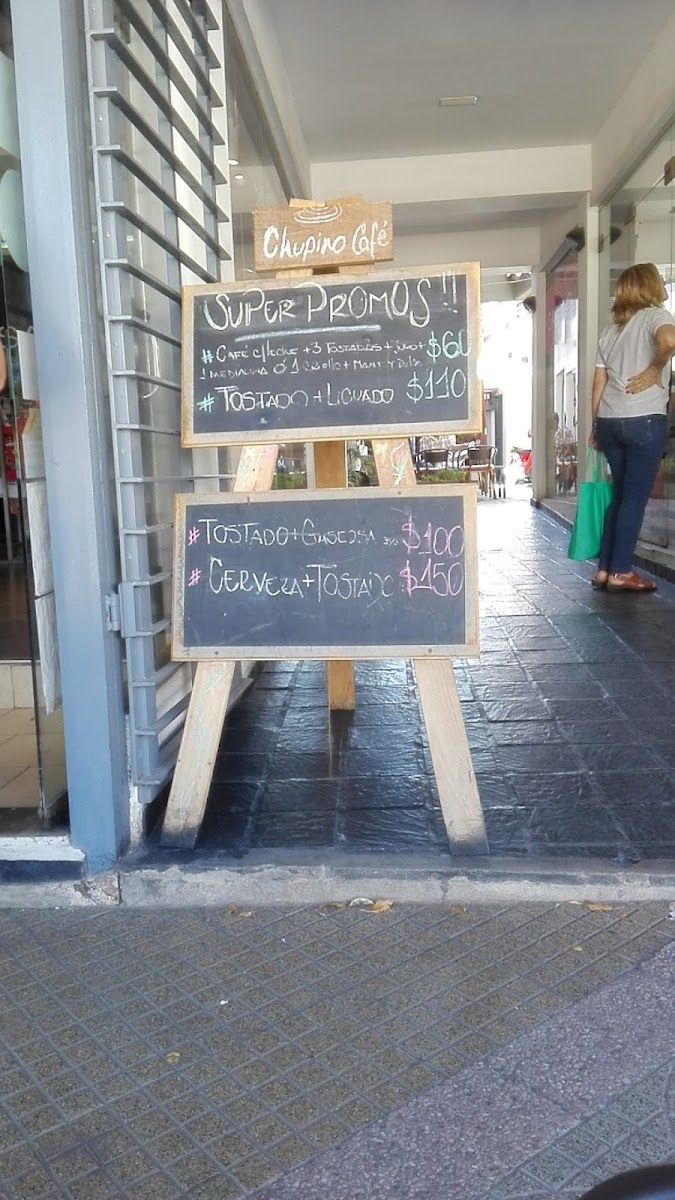 Chupino Café
SUPER PROMOS!!!
# CAFÉ C/LECHE + 3 TOSTADAS + JUGO + $60
1 MEDIALUNA Ó 1 CRIOLLO + MANT Y DUL
# TOSTADO + LICUADO $110
# TOSTADO + GASEOSA 350 $100
# CERVEZA + TOSTADO $150